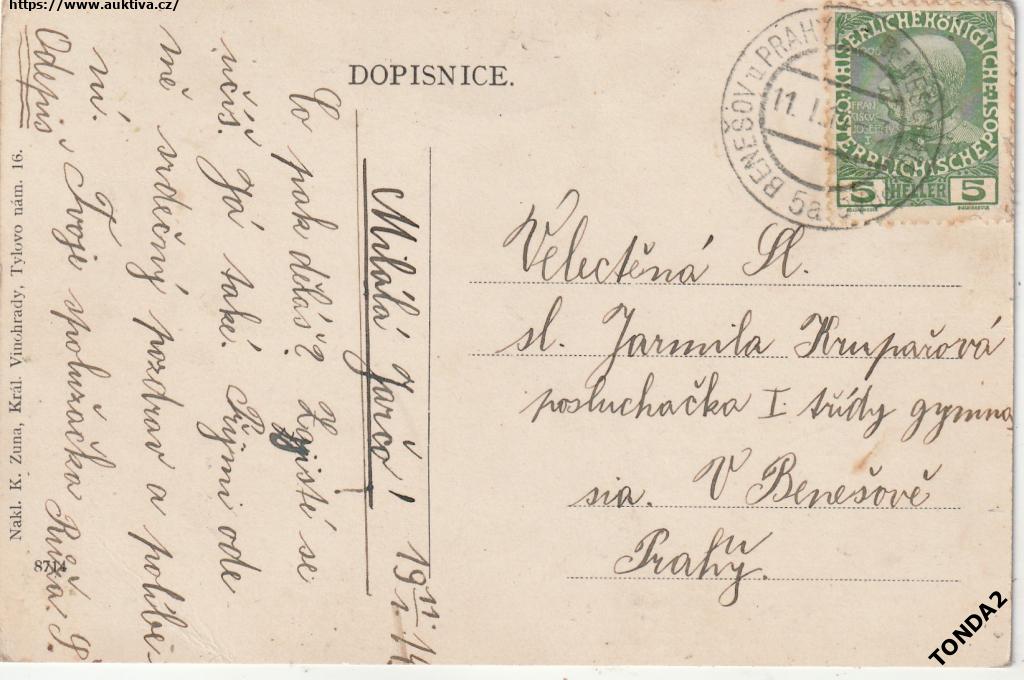 https://www.auktiva.cz/
DOPISNICE.
BENEŠOV u PRAHY
BENESCHAU
11. I. 1
5a
KAISERLICHE KÖNIGLICHE
ÖSTERREICHISCHE POST
FRAN
CISCVS
JOSEPHVS
5 HELLER 5
Velectěná Sl.
sl. Jarmila Krupařová
posluchačka I třídy gymna
sia. V Benešově
u
Prahy.
19 11/I 14
Milálá Jarčo!
Co pak děláš? Zajisté se
učíš. Já také. Přijmi ode
mě srdečný pozdrav a políbe-
ní. Tvoje spolužačka Růža. S.
Odepiš
Nakl. K. Zuna, Král. Vinohrady, Tylovo nám. 16.
8714
TONDA2